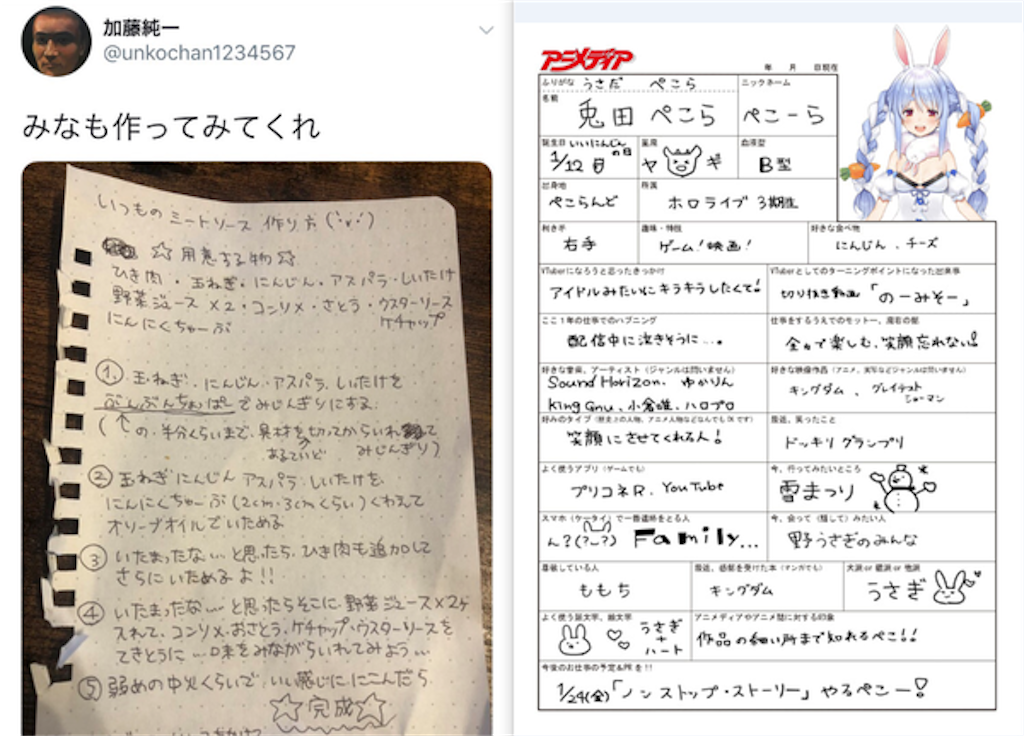 加藤純一
@unkochan1234567
みなも作ってみてくれ
いつもの ミートソース 作り方 (˙v˙)
☆ 用意する物 ☆
ひき肉・玉ねぎ・にんじん・アスパラ・しいたけ
野菜ジュース ×2・コンソメ・さとう・ウスターソース
ケチャップ
にんにくちゅーぶ
① 玉ねぎ・にんじん・アスパラ・しいたけを
ぶんぶんちょぱーでみじんぎりにする
(↑の半分くらいまで、具材を切ってからいれて
あるていど みじんぎり)
② 玉ねぎ にんじん アスパラ しいたけを
にんにくちゅーぶ (2cm・3cmくらい) くわえて
オリーブオイルでいためる
③ いたまったな…と思ったら、ひき肉も追加して
さらにいためるよ!!
④ いたまったな…と思ったらそこに野菜ジュース×2ケ
入れて、コンソメ・おさとう・ケチャップ・ウスターソースを
てきとうに…味をみながらいれてみよう…
⑤ 弱めの中火くらいで、いい感じににこんだら
☆完成☆
アニメディア
年 月 日現在
ふりがな うさだ ぺこら
名前 兎田 ぺこら
ニックネーム
ぺこーら
誕生日 いいにんじんの日
1/12日
星座
ヤギ
血液型
B型
出身地
ぺこらんど
所属
ホロライブ 3期生
利き手
右手
趣味・特技
ゲーム!映画!
好きな食べ物
にんじん、チーズ
VTuberになろうと思ったきっかけ
アイドルみたいにキラキラしたくて!
VTuberとしてのターニングポイントになった出来事
切り抜き動画「のーみそー」
ここ1年の仕事でのハプニング
配信中に泣きそうに…。
仕事をするうえでのモットー、座右の銘
全力で楽しむ、笑顔忘れない!
好きな音楽、アーティスト(ジャンルは問いません)
Sound Horizon、ゆかりん
King Gnu、小倉唯、ハロプロ
好きな映像作品(アニメ、実写などジャンルは問いません)
キングダム、グレイテスト
ショーマン
好みのタイプ(歴史上の人物、アニメ人物などなんでもOKです)
笑顔にさせてくれる人!
最近、笑ったこと
ドッキリ グランプリ
よく使うアプリ(ゲームでも)
プリコネR、YouTube
今、行ってみたいところ
雪まつり
スマホ(ケータイ)で一番連絡をとる人
ん?(?_?) Family...
今、会って(話して)みたい人
野うさぎのみんな
尊敬している人
ももち
最近、感銘を受けた本(マンガでも)
キングダム
犬派 or 猫派 or 他派
うさぎ
よく使う顔文字、絵文字
うさぎ
+
ハート
アニメディアやアニメ誌に対する印象
作品の細い所まで知れるぺこ!!
今後のお仕事の予定&PRを!!
1/24(金)「ノンストップ・ストーリー」やるぺこー!